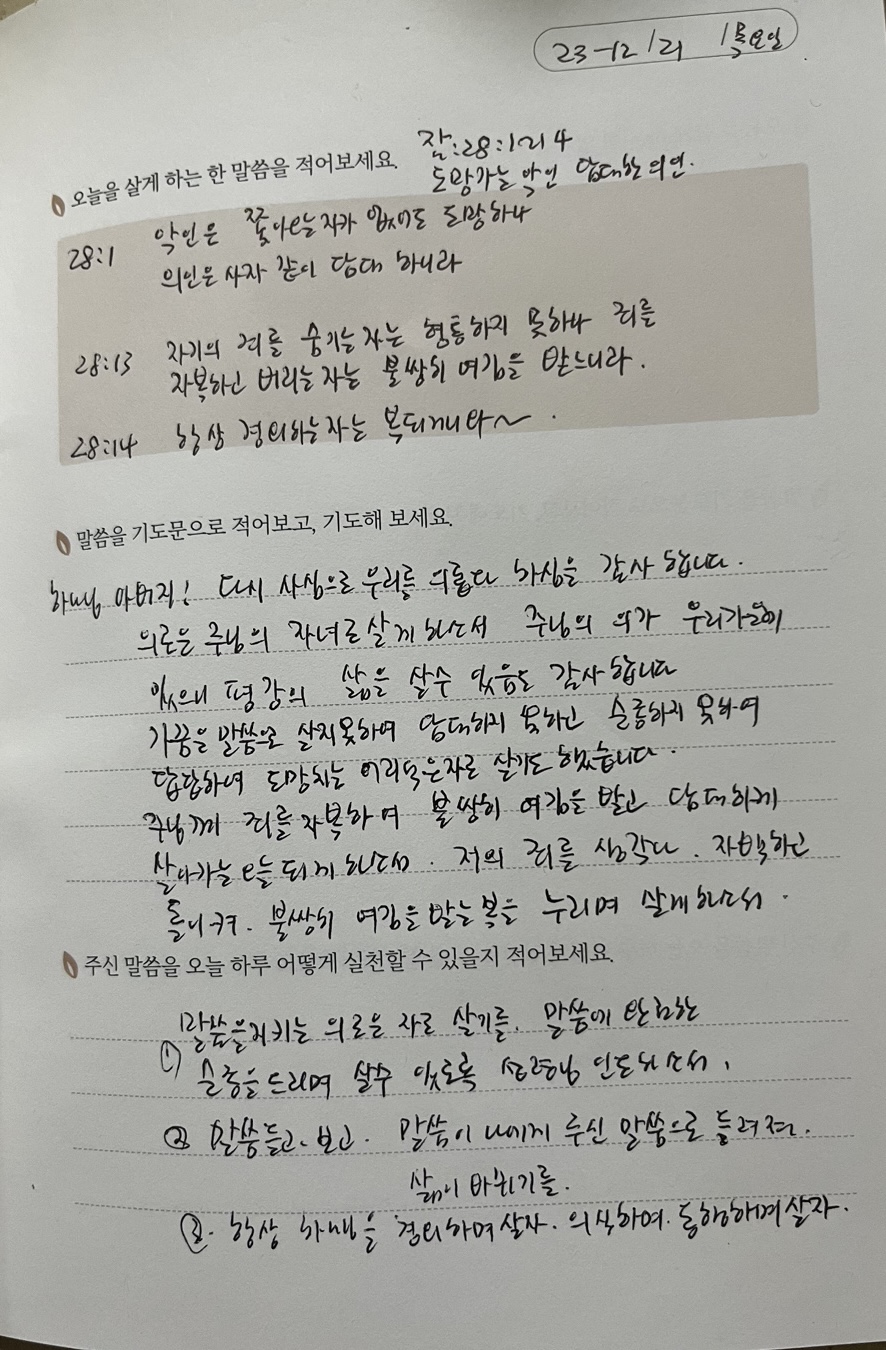 23-12/21 /목요일
잠:28:1-14
오늘을 살게 하는 한 말씀을 적어보세요.
도망가는 악인 담대한 의인.
28:1 악인은 쫓아오는자가 없어도 도망하나
의인은 사자 같이 담대 하니라
28:13 자기의 죄를 숨기는 자는 형통하지 못하나 죄를
자복하고 버리는 자는 불쌍히 여김을 받느니라.
28:14 항상 경외하는자는 복되거니와~.
말씀을 기도문으로 적어보고, 기도해 보세요.
하나님 아버지! 다시 사심으로 우리를 의롭다 하심을 감사 합니다.
의로운 주님의 자녀로 살게 하소서 주님의 의가 우리가운데
있으니 평강의 삶을 살수 있음도 감사 합니다
가끔은 말씀으로 살지못하여 담대하지 못하고 순종하지 못하여
답답하여 도망치는 어리석은자로 살기도 했습니다.
주님께 죄를 자복하여 불쌍히 여김을 받고 담대하게
살아가는 오늘 되게 하소서. 저의 죄를 생각나. 자복하고
돌이켜. 불쌍히 여김을 받는 복을 누리며 살게하소서.
주신 말씀을 오늘 하루 어떻게 실천할 수 있을지 적어보세요.
① 말씀을지키는 의로운 자로 살기를. 말씀에 완전한
순종을 드리며 살수 있도록 성령님 인도하소서.
② 말씀듣고. 보고. 말씀이 나에게 주신 말씀으로 들려져.
삶이 바뀌기를.
③. 항상 하나님을 경외하며살자. 의식하여. 동행하며살자.